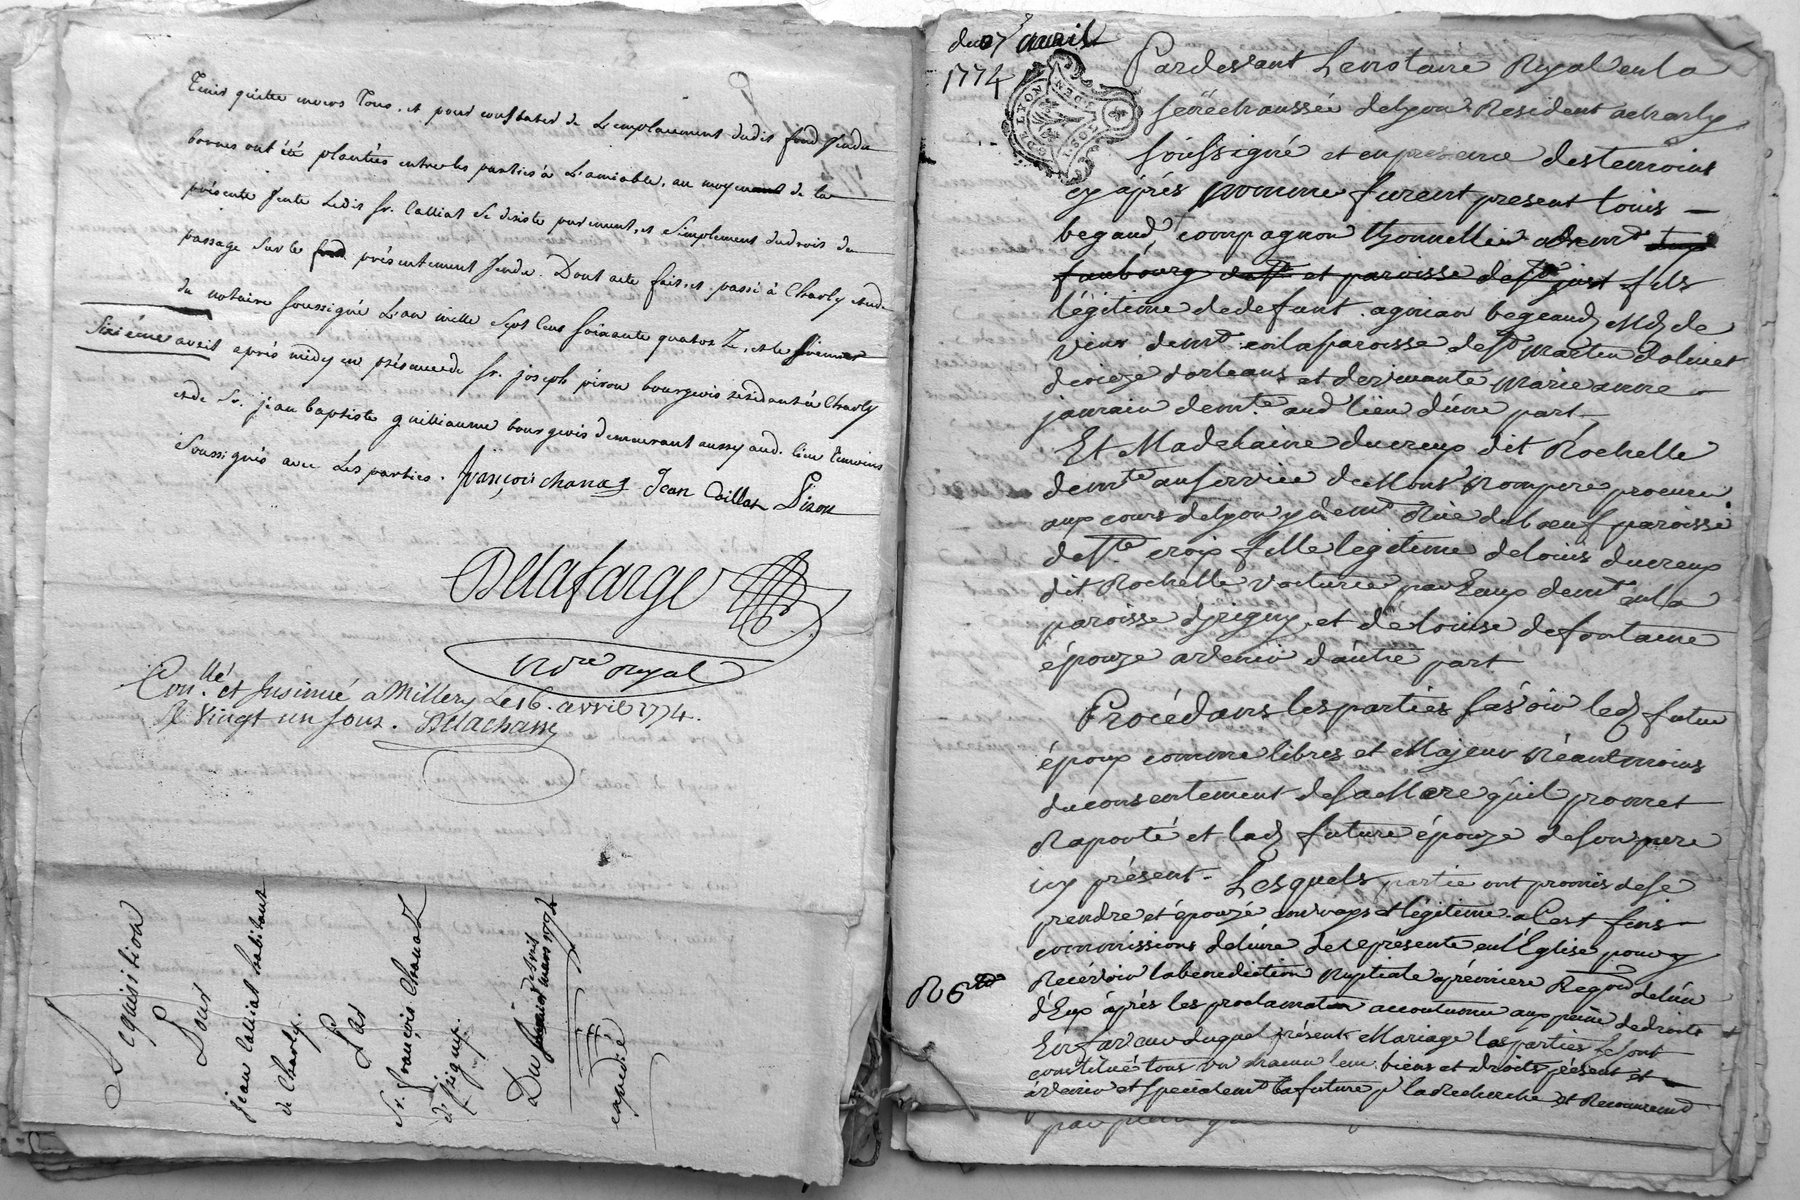 Tenir quitte envers Tous, et pour constater de L'emplacement dudit fond Vendu
bornes ont été plantées entre les parties à L'amiable, au moyennant de la
présente Vente Ledit Sr. Calliat Se desiste purement, et Simplement dudroit de
passage Sur le fond présentement Vendu. Dont acte fait, et passé à Charly étude
du notaire Soussigné L'an mille Sept Cent Soixante quatorze, et le
Sixième avril après midy en présence de Sr. joseph piron bourgeois résidant à Charly
et de Sr. jean baptiste guilliaume bourgeois demeurant aussy aud. lieu Temoins
Soussignés avec Les parties. françois chanas Jean Caillat Piron
Delafarge
Nore royal
Conllé et Insinué a Millery Le 16. avril 1774.
R Vingt un Sous. Delachass
Acquisition
Pour
jean Calliat habitant
de Charly.
Par
Sr. François Chanaz
de Vrigny.
Du
mars 1774
expédié
du 7 avril
1774
G. DE LYON
Pardevant Le notaire Royal en la
sénéchaussée de Lyon Resident a charly
Soussigné et en presence des temoins
cy après nommé furent present Louis
begaud, compagnon thonnellier demt
faubourg et paroisse de St just fils
légitime de defunt agnian begeaud Md de
vin demt. en la paroisse de St Martin d'olivet
diocèze d'orleans et de vivante Marie anne
janrain demte. aud lieu d'une part
Et Madelaine ducreux dit Rochelle
demte au service de Monsr Rompere procureur
aux cours de Lyon y demt Rüe du bœuf paroisse
de Ste croix fille legitime de Louis ducreux
dit Rochelle voiturié par Eaux demt en la
paroisse d'jrigny et de Louise defontaine
épouze avenir d'autre part
Procédans les parties sçavoir led futur
époux comme libres et Majeur Néantmoins
du consentement de sa Mere qu'il promet
Raporté et lad future épouze de son pere
icy présent. Lesquels partie ont promis de se
prendre et épouzé en vrays et légitime a Cest fins
commissions de l'une de se présenté en l'Eglise pour y
Recevoir la bénédiction Nuptiale a première Reqon de l'un
d'Eux après les proclamation accoutumé aux peine de droits
En faveur duquel présent Mariage les parties se sont
constitué tous un chacun leur biens et droits présent et
avenir et specialemt la future pr la Recherche et Recouvremt